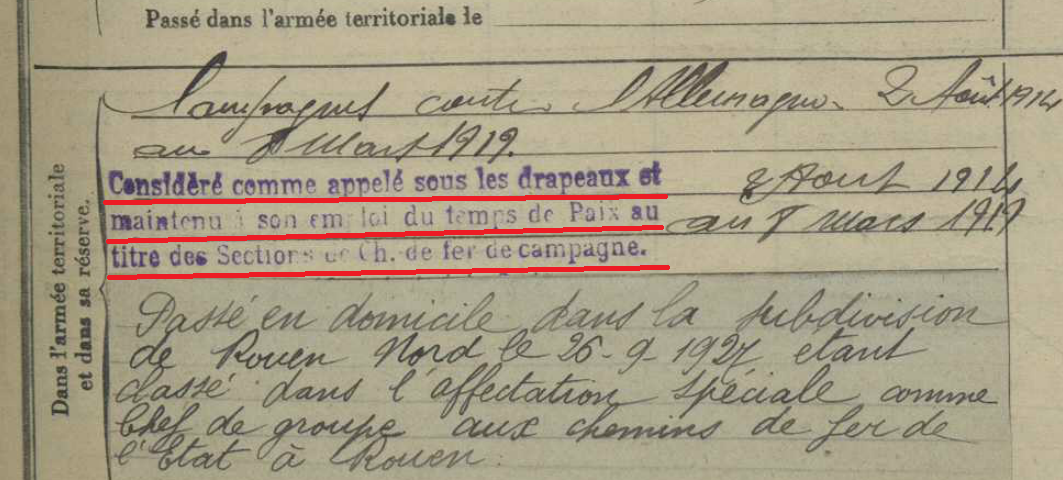 Passé dans l'armée territoriale le
Dans l'armée territoriale
et dans sa réserve.
Campagnes contre l'Allemagne. 2 Août 1914
au 8 Mars 1919.
Considéré comme appelé sous les drapeaux et 2 Aout 1914
maintenu à son emploi du temps de Paix au au 8 mars 1919
titre des Sections de Ch. de fer de campagne.
Passé en domicile dans la subdivision
de Rouen Nord le 26-9 1927 etant
classé dans l'affectation spéciale comme
Chef de groupe aux chemins de fer de
l'Etat à Rouen